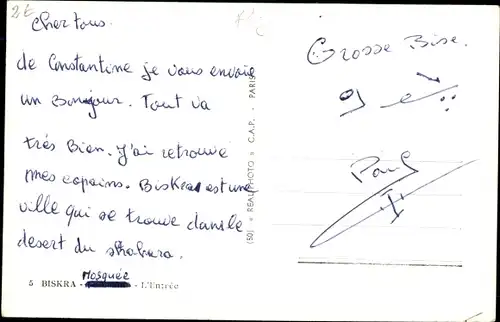 2€
Cher tous.
de Constantine je vous envoie
un Bonjour. Tout va
très Bien. J'ai retrouvé
mes copains. Biskra est une
ville qui se trouve dans le
desert du shahara.
Mosquée
5 BISKRA - - L'Entrée
(50) = REAL PHOTO = C.A.P. - PARIS
Grosse Bise.
Paul